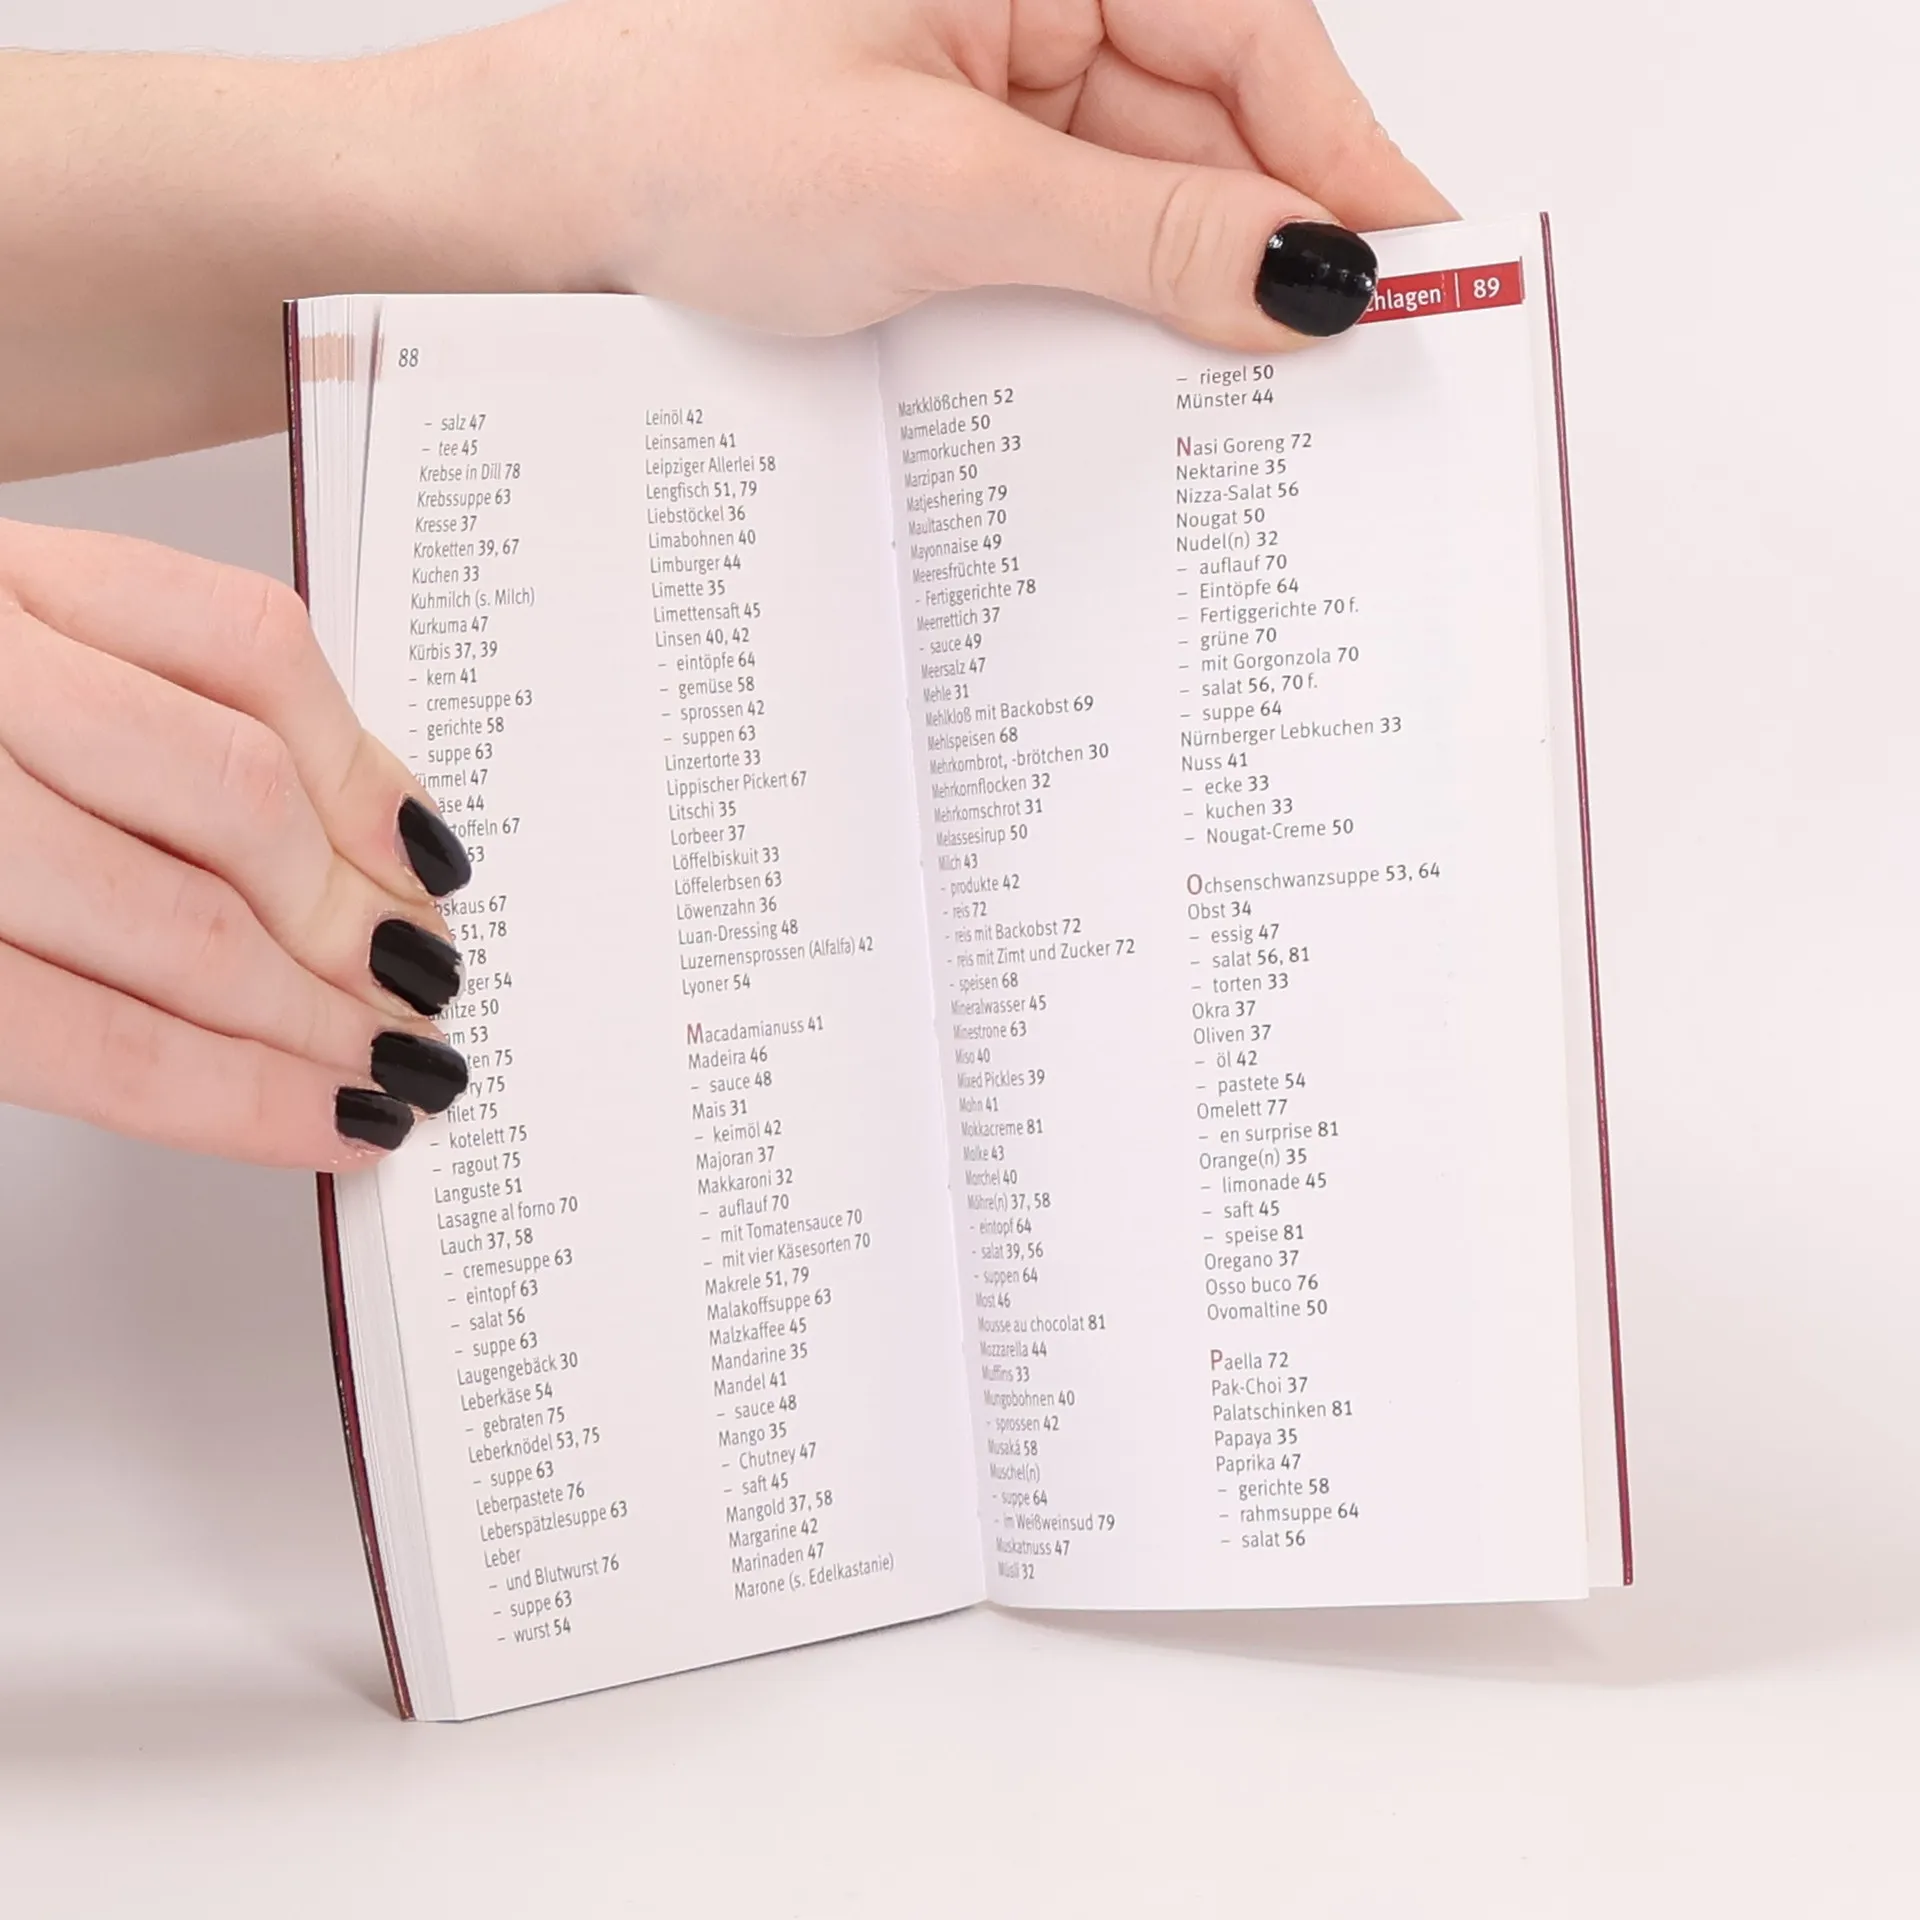 88
– salz 47
– tee 45
Krebse in Dill 78
Krebssuppe 63
Kresse 37
Kroketten 39, 67
Kuchen 33
Kuhmilch (s. Milch)
Kurkuma 47
Kürbis 37, 39
– kern 41
– cremesuppe 63
– gerichte 58
– suppe 63
ümmel 47
äse 44
toffeln 67
53
bskaus 67
s 51, 78
78
ger 54
kritze 50
mm 53
ten 75
ry 75
– filet 75
– kotelett 75
– ragout 75
Languste 51
Lasagne al forno 70
Lauch 37, 58
– cremesuppe 63
– eintopf 63
– salat 56
– suppe 63
Laugengebäck 30
Leberkäse 54
– gebraten 75
Leberknödel 53, 75
– suppe 63
Leberpastete 76
Leberspätzlesuppe 63
Leber
– und Blutwurst 76
– suppe 63
– wurst 54
Leinöl 42
Leinsamen 41
Leipziger Allerlei 58
Lengfisch 51, 79
Liebstöckel 36
Limabohnen 40
Limburger 44
Limette 35
Limettensaft 45
Linsen 40, 42
– eintöpfe 64
– gemüse 58
– sprossen 42
– suppen 63
Linzertorte 33
Lippischer Pickert 67
Litschi 35
Lorbeer 37
Löffelbiskuit 33
Löffelerbsen 63
Löwenzahn 36
Luan-Dressing 48
Luzernensprossen (Alfalfa) 42
Lyoner 54
Macadamianuss 41
Madeira 46
– sauce 48
Mais 31
– keimöl 42
Majoran 37
Makkaroni 32
– auflauf 70
– mit Tomatensauce 70
– mit vier Käsesorten 70
Makrele 51, 79
Malakoffsuppe 63
Malzkaffee 45
Mandarine 35
Mandel 41
– sauce 48
Mango 35
– Chutney 47
– saft 45
Mangold 37, 58
Margarine 42
Marinaden 47
Marone (s. Edelkastanie)
chlagen | 89
Markklößchen 52
Marmelade 50
Marmorkuchen 33
Marzipan 50
Matjeshering 79
Maultaschen 70
Mayonnaise 49
Meeresfrüchte 51
- Fertiggerichte 78
Meerrettich 37
- sauce 49
Meersalz 47
Mehle 31
Mehlkloß mit Backobst 69
Mehlspeisen 68
Mehrkornbrot, -brötchen 30
Mehrkornflocken 32
Mehrkornschrot 31
Melassesirup 50
Milch 43
- produkte 42
- reis 72
- reis mit Backobst 72
- reis mit Zimt und Zucker 72
- speisen 68
Mineralwasser 45
Minestrone 63
Miso 40
Mixed Pickles 39
Mohn 41
Mokkacreme 81
Molke 43
Morchel 40
Möhre(n) 37, 58
- eintopf 64
- salat 39, 56
- suppen 64
Most 46
Mousse au chocolat 81
Mozzarella 44
Muffins 33
Mungobohnen 40
- sprossen 42
Musaká 58
Muschel(n)
- suppe 64
- im Weißweinsud 79
Muskatnuss 47
Müsli 32
– riegel 50
Münster 44
Nasi Goreng 72
Nektarine 35
Nizza-Salat 56
Nougat 50
Nudel(n) 32
– auflauf 70
– Eintöpfe 64
– Fertiggerichte 70 f.
– grüne 70
– mit Gorgonzola 70
– salat 56, 70 f.
– suppe 64
Nürnberger Lebkuchen 33
Nuss 41
– ecke 33
– kuchen 33
– Nougat-Creme 50
Ochsenschwanzsuppe 53, 64
Obst 34
– essig 47
– salat 56, 81
– torten 33
Okra 37
Oliven 37
– öl 42
– pastete 54
Omelett 77
– en surprise 81
Orange(n) 35
– limonade 45
– saft 45
– speise 81
Oregano 37
Osso buco 76
Ovomaltine 50
Paella 72
Pak-Choi 37
Palatschinken 81
Papaya 35
Paprika 47
– gerichte 58
– rahmsuppe 64
– salat 56